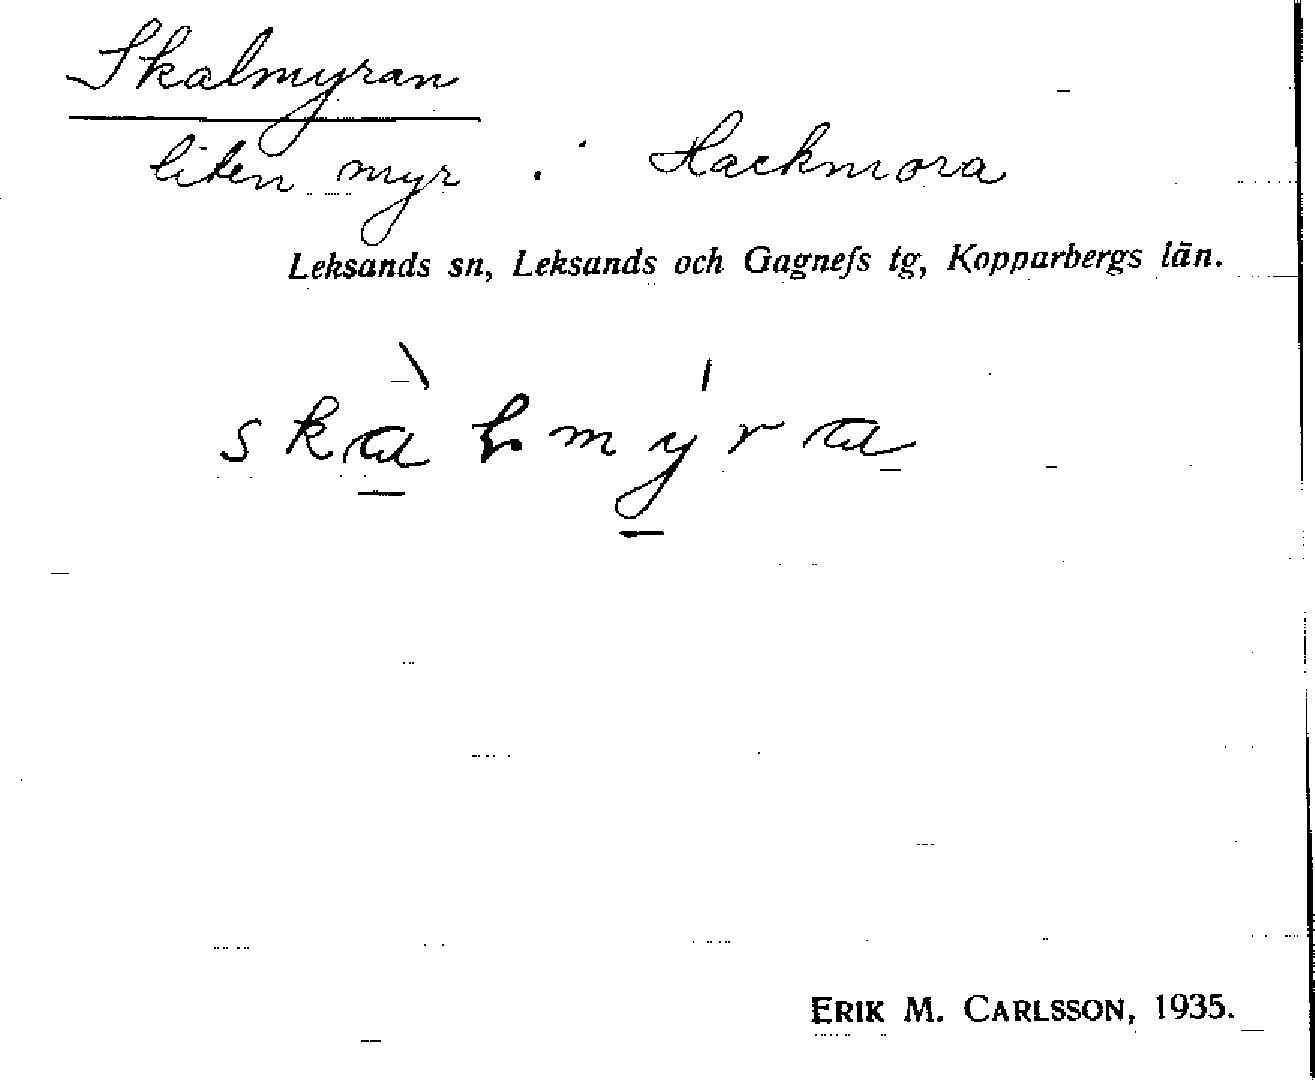 Skalmyran
liten myr i Hackmora
Leksands sn, Leksands och Gagnefs tg, Kopparbergs län.
ERIK M. CARLSSON, 1935.